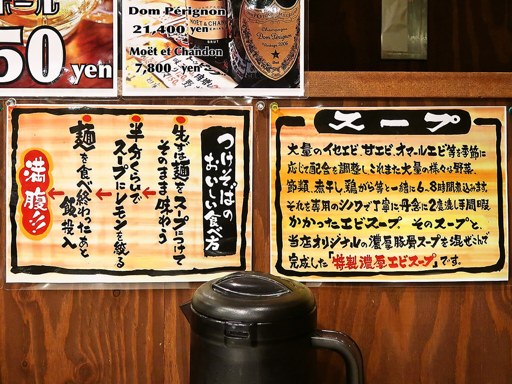 ボール
50 yen
Dom Pérignon
21,400 yen
Moët et Chandon
7,800 yen
つけそばの
おいしい食べ方
まずは麺をスープにつけて
そのまま味わう
半分くらいで
スープにレモンを絞る
麺を食べ終わったあと
飯投入
満腹!!
スープ
大量のイセエビ、甘エビ、オマールエビ等を季節に
応じて配合を調整し、これまた大量の様々な野菜、
節類、煮干し、鶏がら等と一緒に6、8時間煮込みます。
それを専用のシノワで丁寧に丹念に2度濾し手間暇
かかったエビスープ。そのスープと、
当店オリジナルの濃厚豚骨スープを混ぜこんで
完成した「特製濃厚エビスープ」です。